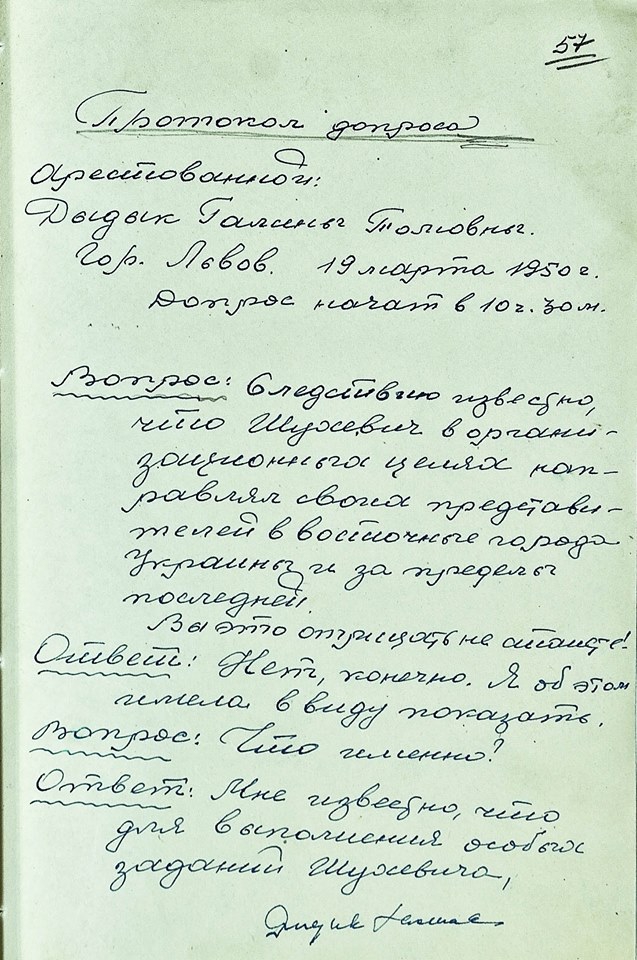 57
Протокол допроса
Арестованной:
Дыдык Галины Томовны.
Гор. Львов. 19 марта 1950 г.
Допрос начат в 10 ч. 30 м.
Вопрос: Следствию известно,
что Шухевич в органи-
зационных целях нап-
равлял своих представи-
телей в восточные города
Украины и за пределы
последней.
Вы это отрицать не станете?
Ответ: Нет, конечно. Я об этом
имела в виду показать.
Вопрос: Что именно?
Ответ: Мне известно, что
для выполнения особых
заданий Шухевича,
Дидик